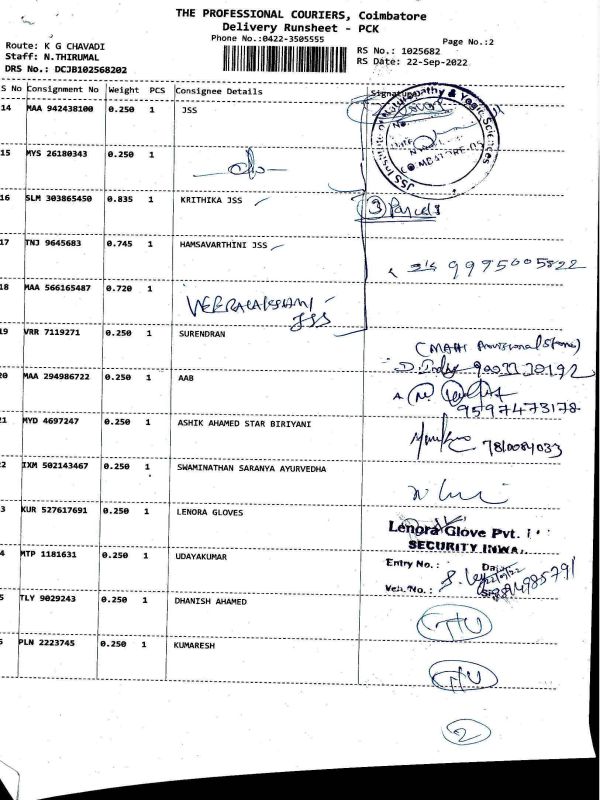 THE PROFESSIONAL COURIERS, Coimbatore
Delivery Runsheet - PCK
Phone No.:0422-3505555
Page No.:2
Route: K G CHAVADI
Staff: N.THIRUMAL
DRS No.: DCJB102568202
RS No.: 1025682
RS Date: 22-Sep-2022
S No Consignment No Weight PCS Consignee Details Signature
14 MAA 942438100 0.250 1 JSS
JSS Institute of Naturopathy & Yogic Sciences
COIMBATORE
15 MYS 26180343 0.250 1
16 SLM 303865450 0.835 1 KRITHIKA JSS
3 Parcels
17 TNJ 9645683 0.745 1 HAMSAVARTHINI JSS
9975005822
18 MAA 566165487 0.720 1 VEERALAKSHMI
JSS
19 VRR 7119271 0.250 1 SURENDRAN
(MAHI Provisional Store)
20 MAA 294986722 0.250 1 AAB
9597473178
21 MYD 4697247 0.250 1 ASHIK AHAMED STAR BIRIYANI
7810084033
2 IXM 502143467 0.250 1 SWAMINATHAN SARANYA AYURVEDHA
3 KUR 527617691 0.250 1 LENORA GLOVES
Lenora Glove Pvt.
SECURITY INWA
4 MTP 1181631 0.250 1 UDAYAKUMAR
Entry No. :
Veh.No. :
5 TLY 9029243 0.250 1 DHANISH AHAMED
6 PLN 2223745 0.250 1 KUMARESH
2